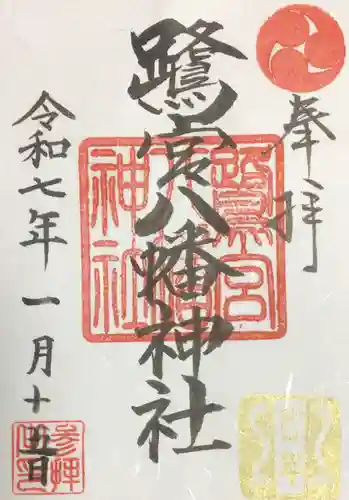 奉拝
鷺宮八幡神社
令和七年一月十五日
鷺宮八幡神社
参拝